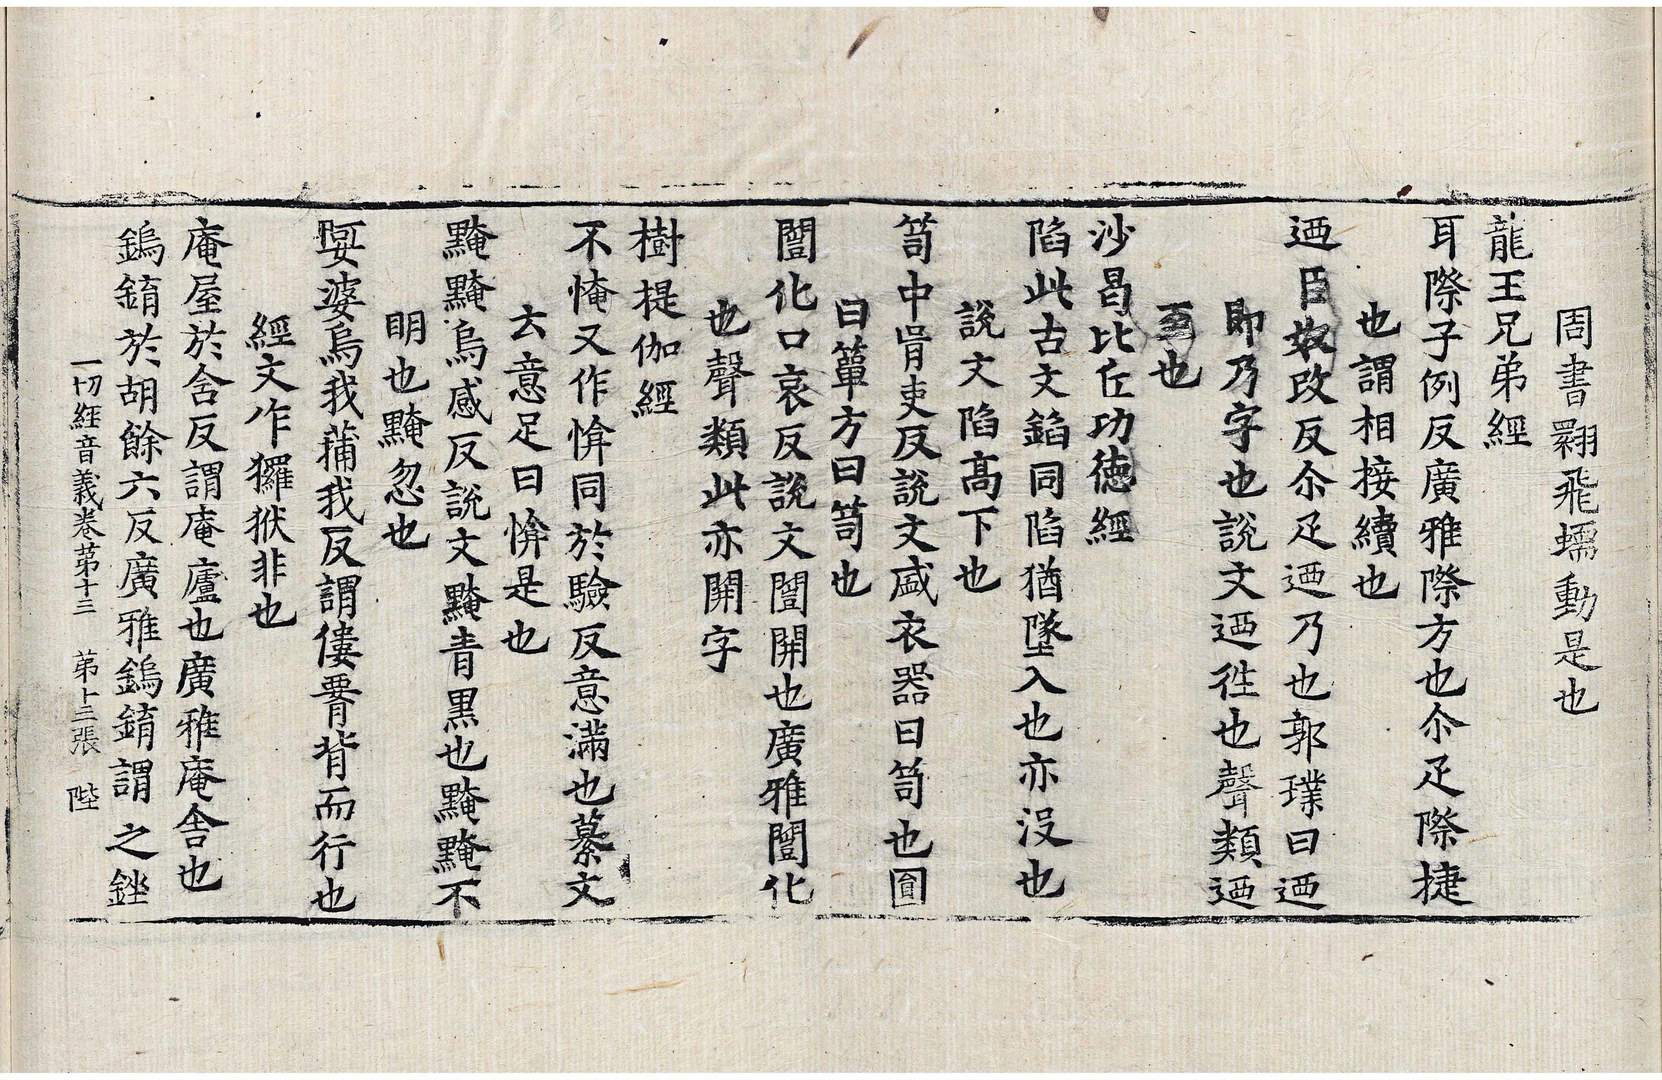 周書翾飛蠕動是也
龍王兄弟經
耳際子例反廣雅際方也尒疋際捷
也謂相接續也
迺臣奴改反尒疋迺乃也郭璞曰迺
即乃字也說文迺徃也聲類迺
至也
沙曷比丘功德經
陷此古文錎同陷猶墜入也亦没也
說文陷髙下也
笥中胥吏反說文盛衣器曰笥也圓
曰簞方曰笥也
闓化口哀反說文闓開也廣雅闓化
也聲類此亦開字
樹提伽經
不㤿又作㤷同於驗反意滿也纂文
云意足曰㤷是也
黤黤烏感反說文黤青黒也黤黤不
明也黤忽也
婐婆烏我蒱我反謂僂䏿背而行也
經文作玀㹤非也
庵屋於含反謂庵廬也廣雅庵舎也
鎢錥於胡餘六反廣雅鎢錥謂之銼
一切經音義卷第十三 第十三張 陛